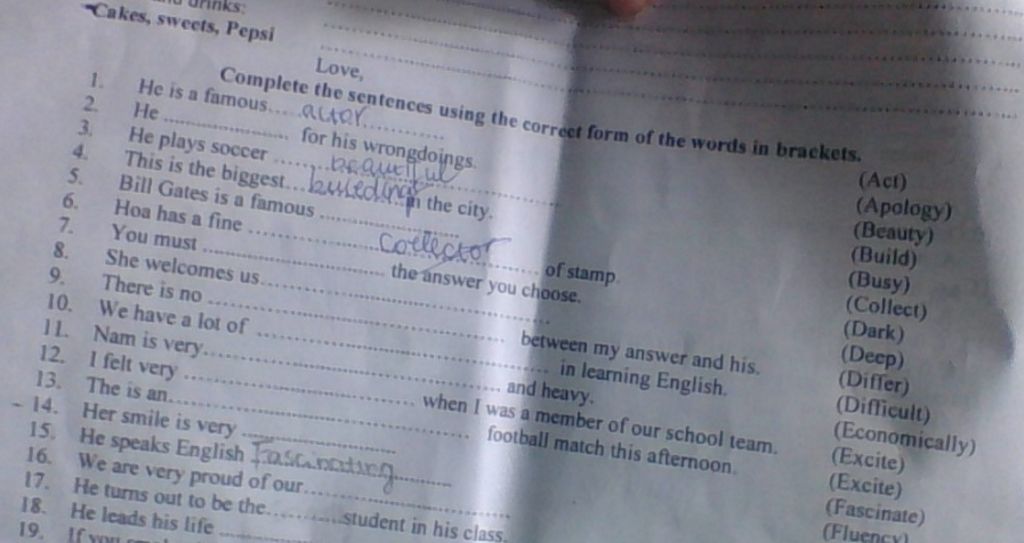 drinks:
Cakes, sweets, Pepsi
Love,
Complete the sentences using the correct form of the words in brackets.
1. He is a famous.....actor............... (Act)
2. He .......................... for his wrongdoings. (Apology)
3. He plays soccer ..........beautiful.................... (Beauty)
4. This is the biggest....buledings in the city. (Build)
5. Bill Gates is a famous .......................... (Busy)
6. Hoa has a fine ..........collector.......... of stamp. (Collect)
7. You must .......................... the answer you choose. (Dark)
8. She welcomes us.......................... (Deep)
9. There is no .......................... between my answer and his. (Differ)
10. We have a lot of .......................... in learning English. (Difficult)
11. Nam is very.......................... and heavy. (Economically)
12. I felt very .......................... when I was a member of our school team. (Excite)
13. The is an.......................... football match this afternoon. (Excite)
14. Her smile is very .......................... (Fascinate)
15. He speaks English Fascinating.......... (Fluency)
16. We are very proud of our..........................
17. He turns out to be the...............student in his class.
18. He leads his life ..........................
19. If you